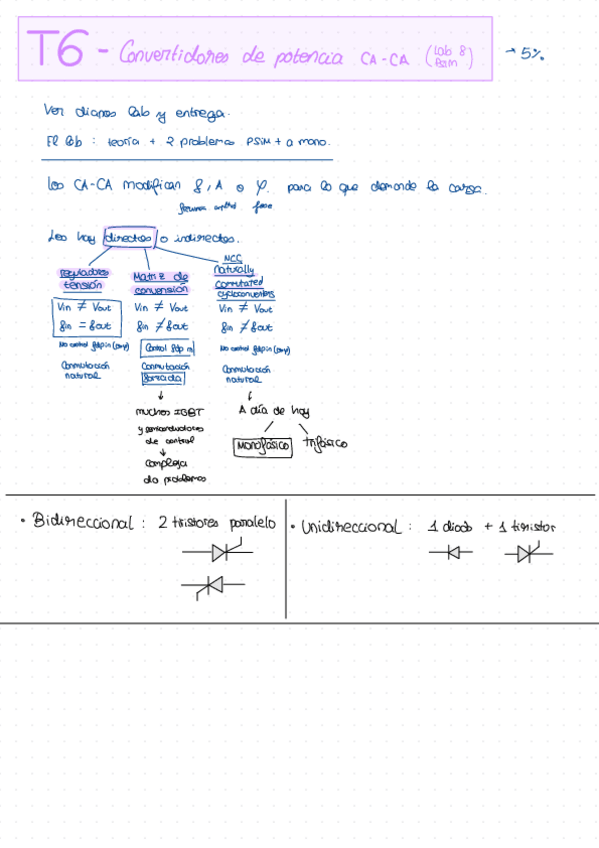 T6 - Convertidores de potencia CA-CA (Lab 8 Psim) → 5%
Ver diapos lab y entrega.
El lab : teoría + 2 problemas PSIM + a mano.
Los CA-CA modifican f, A o φ para lo que demande la carga.
frecuencia amplitud fase
Los hay directos o indirectos.
reguladores tensión
Vin ≠ Vout
fin = fout
No control fdp in
Conmutación natural
Matriz de conversión
Vin ≠ Vout
fin ≠ fout
Control fdp in
Conmutación forzada
↓
muchos IGBT
y semiconductores
de control
↓
compleja
da problemas
NCC
Naturally
Commutated
cycloconverters
Vin ≠ Vout
fin ≠ fout
No control fdp in
Conmutación natural
↓
A día de hoy
Monofásico trifásico
• Bidireccional : 2 tiristores paralelo
• Unidireccional : 1 diodo + 1 tiristor